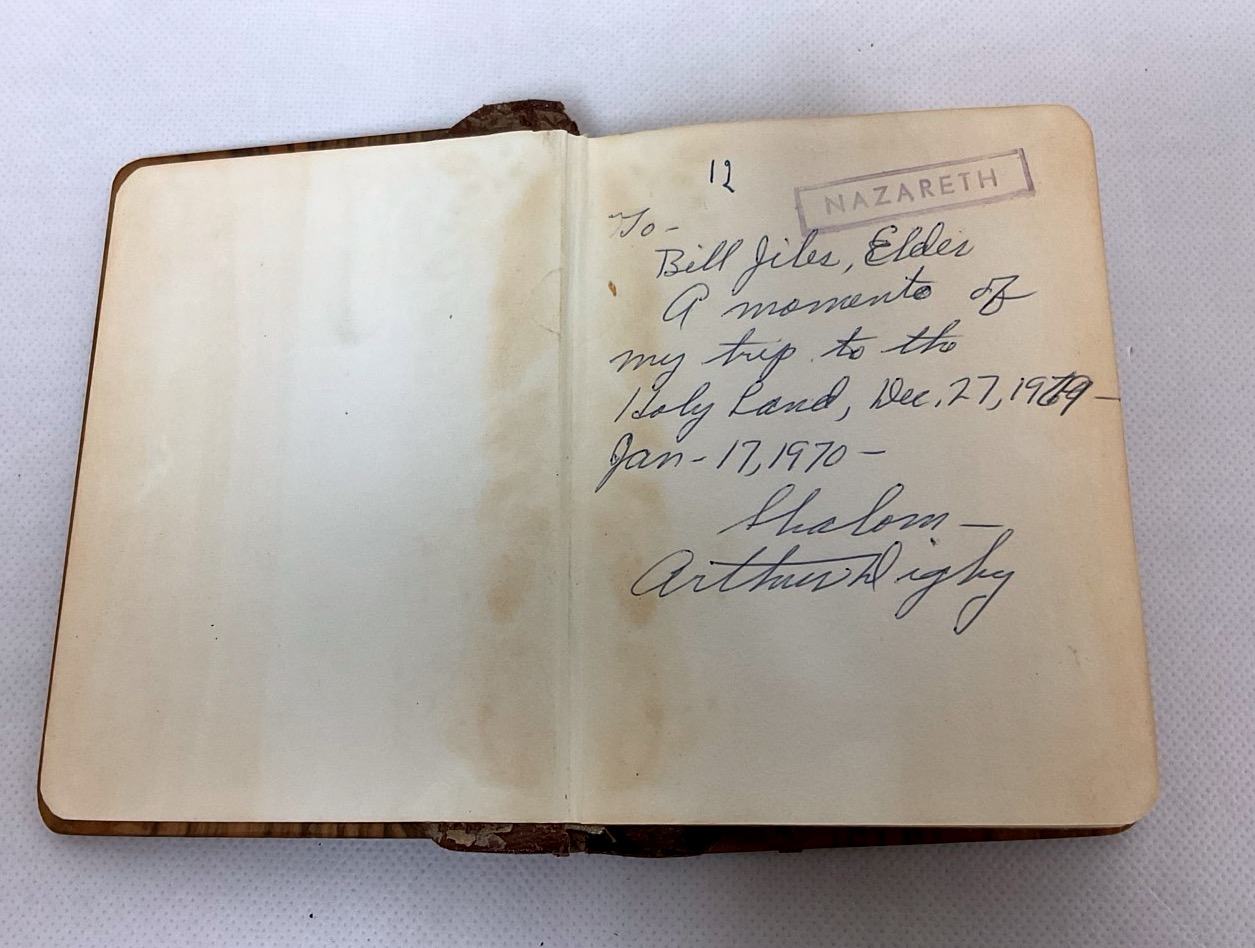 12
NAZARETH
To-
Bill Jiles, Elder
A momento of
my trip to the
Holy Land, Dec. 27, 1969-
Jan - 17, 1970 -
Shalom -
Arthur Digby